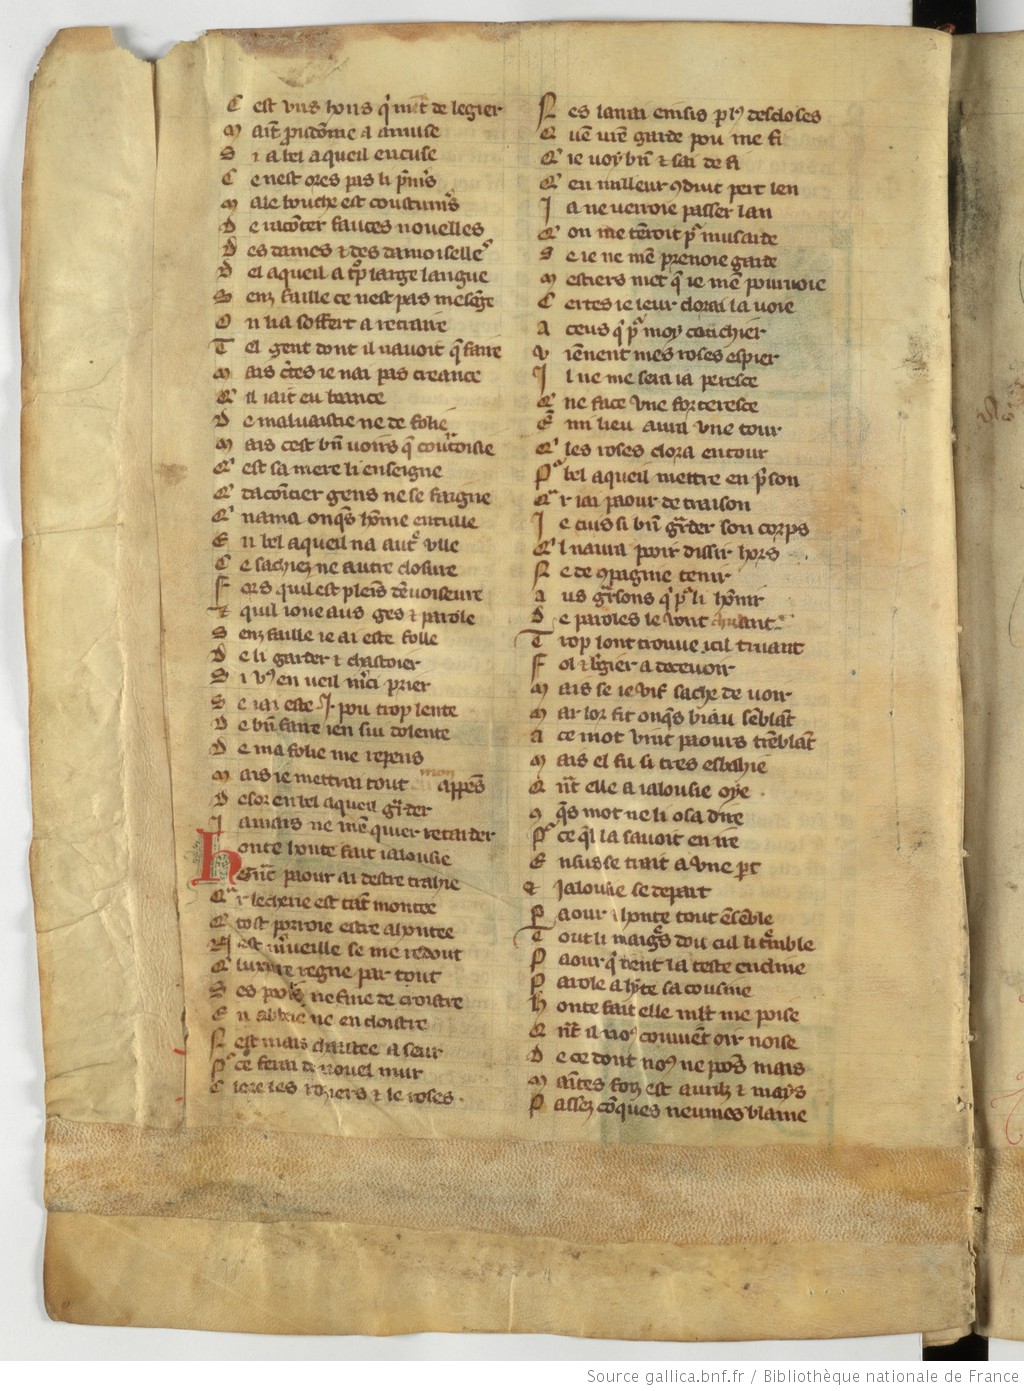 C est vns hons q' ment de legier
M aīt p̄udōme a amuse
S i a bel aqueil encuse
C e nest ores pas li p̄m's
M ale bouche est coustum's
D e racōter fauces nouelles
D es dames ⁊ des damoiselles
D el aqueil a t'p large langue
S enz faille ce nest pas mesōge
O n li a soffert a retraire
T el gent dont il nauoit q̄ faire
M ais c̄tes ie nai pas creance
Q' il iait eu beance
D e maluaistie ne de folie
M ais cest bn̄ uoirs q̄ co'toisie
Q' est sa mere li enseigne
Q' dacoītier gens ne se faigne
Q' nama onq̄s hōme entulle
E n bel aqueil na aut' ulle
C e sachiez ne autre closure
F ors quil est pleīs dēuoiseure
⁊ quil ioue aus ges ⁊ parole
S enz faille ie ai este folle
D e li garder ⁊ chastoier
S i v' en ueil m'ci prier
S e iai este .i. pou trop lente
D e bn̄ faire ien sui dolente
D e ma folie me repens
M ais ie mettrai tout mon appēs
D esor en bel aqueil g'der
I amais ne men quier retarder
H onte honte fait ialousie
G n̄t paour ai destre trahie
Q' r lecherie est tāt montee
Q' tost porroie estre ahontee
N est m'ueille se me redout
Q' luxure regne par tout
S es pooīs ne fine de croistre
E n abbaie ne en cloistre
N est mais chastee a seur
P' ce ferai de nouel mur
C lore les roziers ⁊ le roses .
N es lairai ensis p' l' descloses
Q uēt uīē garde pou me fi
Q' ie uoy bn̄ ⁊ sai de fi
Q' en milleur 9duit pert len
I a ne uerroie passer lan
Q' on me tēroit p' musarde
S e ie ne mē prenoie garde
M estiers mēt q̄ ie mē pouruoie
C ertes ie leur clorai la uoie
A ceus q' p' moy cōchier
V iēnent mes roses espier
I l ne me sera ia peresce
Q' ne face vne forteresce
E n mi lieu aura vne tour
Q' les roses clora entour
P' bel aqueil mettre en p'son
Q' r iai paour de traison
I e cuis si bn̄ g'der son corps
Q' l naura poir dissir hors
N e de 9pagnie tenir
A us g'sons q' p' li hōnir
D e paroles le uont chuant
T rop lont trouue icil truant
F ol ⁊ leḡier a deceuoir
M ais se ie vif sache de uoir
M ar lor fit onq̄s biau sēblāt
A ce mot vint paours trēblāt
M ais el fu si tres esbahie
Q n̄t elle a ialousie oye .
9 q̄s mot ne li osa dire
P' ce q̄l la sauoit en ire
E n sus se trait a vne p̄t
⁊ Jalousie se depart
P aour ⁊ honte tout ēsēble
T out li maig's dou cul li t'mble
P aour q' tient la teste encline
P arole a hōte sa cousine
H onte fait elle mlt̄ me poise
Q n̄t il no' couuēt oir noise
D e ce dont no' ne poōs mais
M aītes foiz est auriz ⁊ mays
P assez cōques neumes blame
Source gallica.bnf.fr / Bibliothèque nationale de France